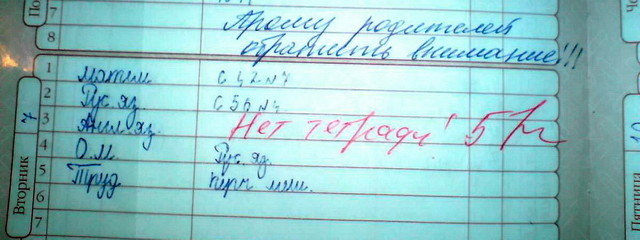 По
7
8
Прошу родителей
обратить внимание!!!
Вторник
7
1 матем с 42 №7
2 Рус яз. с 56 №
3 Англ яз. Нет тетради! 5
4 О.М Рус яз.
5 Труд
6
7
Че
Пятница
10